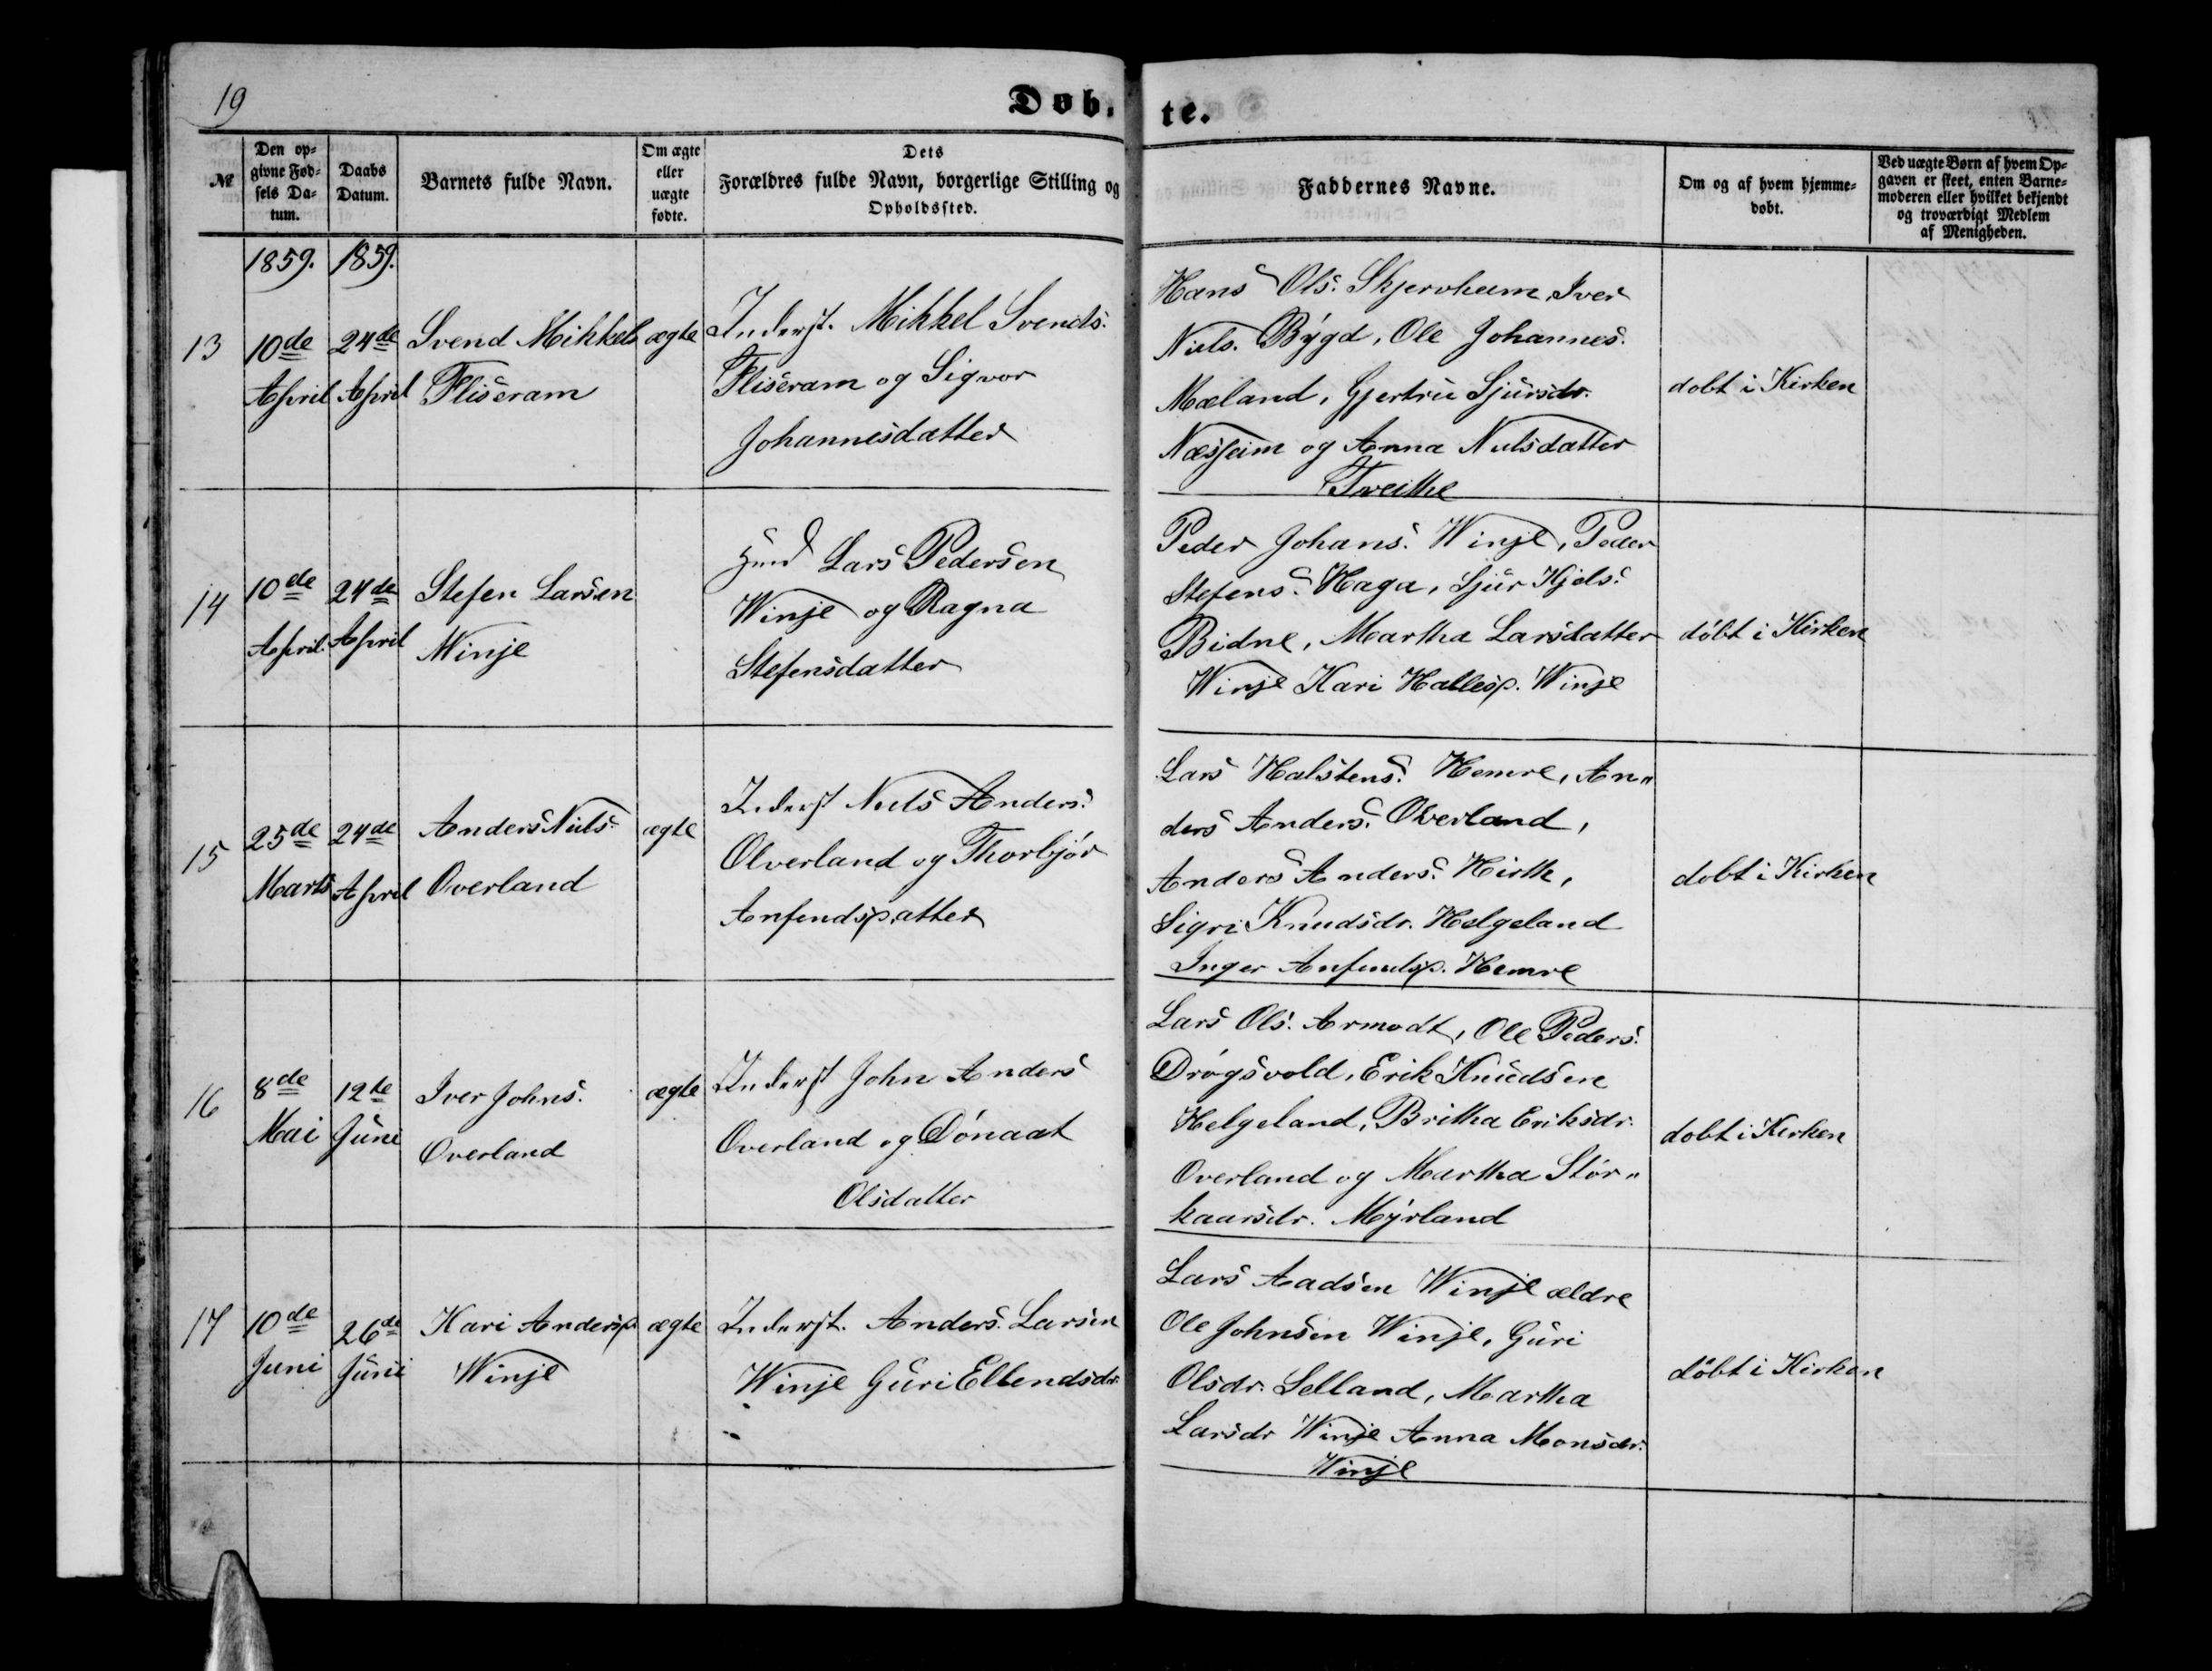 19
Døb-
te.
№
Den op-
givne Fød-
sels Da-
tum.
Daabs
Datum.
Barnets fulde Navn.
Om ægte
eller
uægte
fødte.
Dets
Forældres fulde Navn, borgerlige Stilling og
Opholdssted.
Faddernes Navne.
Om og af hvem hjemme-
døbt.
Ved uægte Børn af hvem Op-
gaven er skeet, enten Barne-
moderen eller hvilket bekjendt
og troværdigt Medlem
af Menigheden.
1859. 1859.
13
10de
April
24de
April
Svend Mikkels
Fliseram
ægte
Inderst. Mikkel Svends.
Fliseram og Sigvor
Johannesdatter
Hans Ols. Skjervheim, Iver
Niels. Bÿgd, Ole Johannes.
Mæland, Gjertru Sjursdr.
Næsheim og Anna Nielsdatter
Tveithe
dobt i Kirken
14
10de
April.
24de
April
Stefen Larsen
Winje
Lars Pedersen
Winje og Ragna
Stefensdatter
Peder Johans. Winje, Peder
Stefens. Haga, Sjur Kjels.
Bidne, Martha Larsdatter
Winje Kari Hallesp. Winje
döbt i Kirken
15
25de
Marts
24de
April
Anders Niels.
Overland
ægte
Inderst Niels Anders.
Olverland og Thorbjör
Anfindsp.atter
Lars Halstens. Hemre, An„
ders Anders. Overland,
Anders Anders. Hirth,
Sigri Knudsdr. Helgeland
Inger Anfindsp. Hemre
dobt i Kirken
16
8de
Mai
12te
Juni
Iver Johns.
Overland
ægte
Inderst John Anders
Overland og Dónaat
Olsdatter
Lars Ols. Armodt, Ole Peders.
Drögsvold, Erik Knudsen
Helgeland, Britha Eriksdr.
Overland og Martha Stör„
kaarsdr. Mÿrland
dobt i Kirken
17
10de
Juni
26de
Juni
Kari Andersp.
Winje
ægte
Inderst. Anders. Larsen
Winje Guri Ellendsdr.
Lars Aadsen Winje ældre
Ole Johnsen Winje, Guri
Olsdr. Selland, Martha
Larsdr Winje Anna Monsdr.
Winje
döbt i Kirken